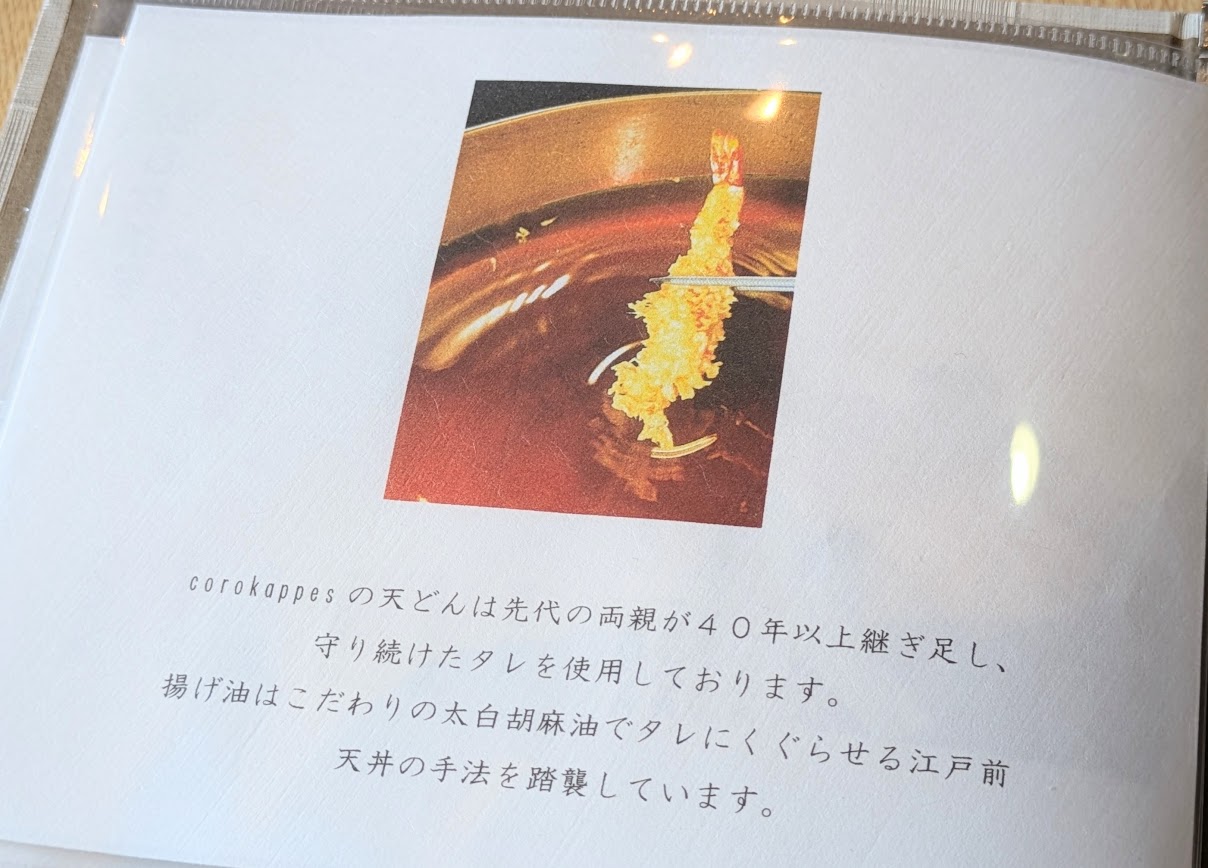 corokappesの天どんは先代の両親が４０年以上継ぎ足し、
守り続けたタレを使用しております。
揚げ油はこだわりの太白胡麻油でタレにくぐらせる江戸前
天丼の手法を踏襲しています。